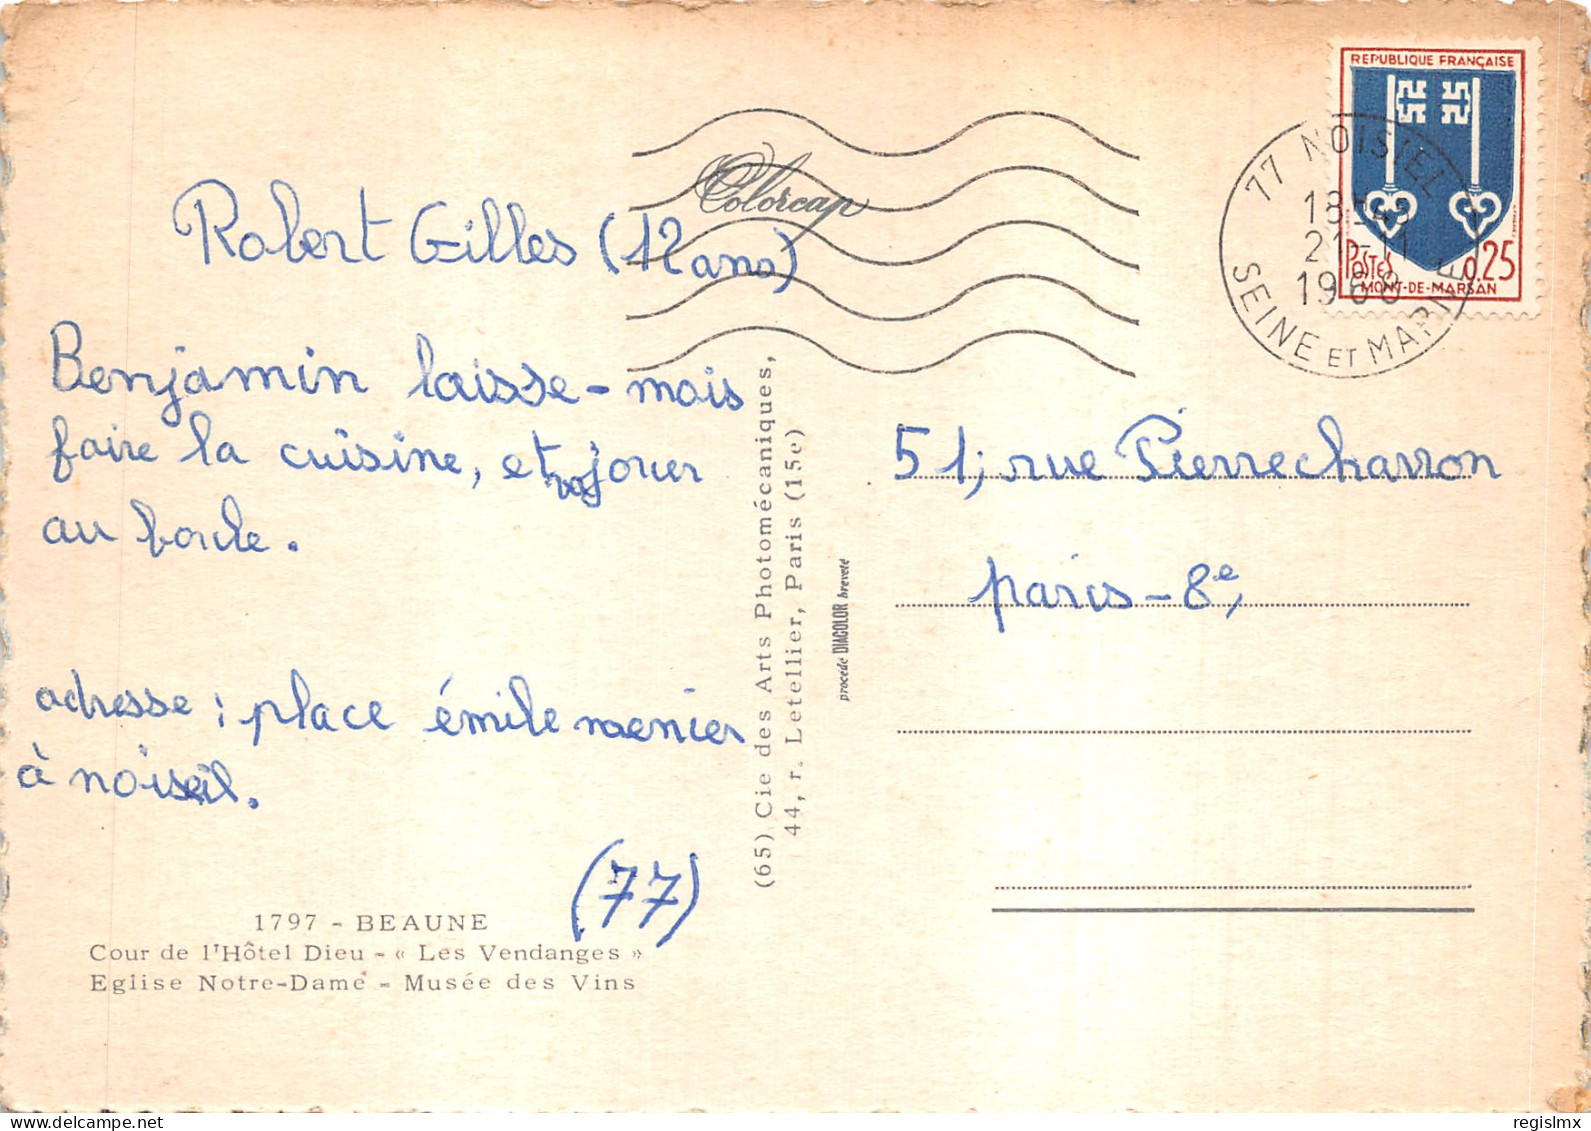 Colorcap
REPUBLIQUE FRANÇAISE
POSTES 0,25
MONT-DE-MARSAN
77 NOISIEL
21-11
SEINE ET MARNE
Robert Gilles (12 ans)
Benjamin laisse-mois
faire la cuisine, et va jouer
au boule.
adresse : place émile menier
à noiseil.
(77)
1797 - BEAUNE
Cour de l'Hôtel Dieu - « Les Vendanges »
Eglise Notre-Dame - Musée des Vins
(65) Cie des Arts Photomécaniques,
44, r. Letellier, Paris (15e)
procédé DIACOLOR breveté
51, rue Pierrecharron
paris-8e,
regislmx